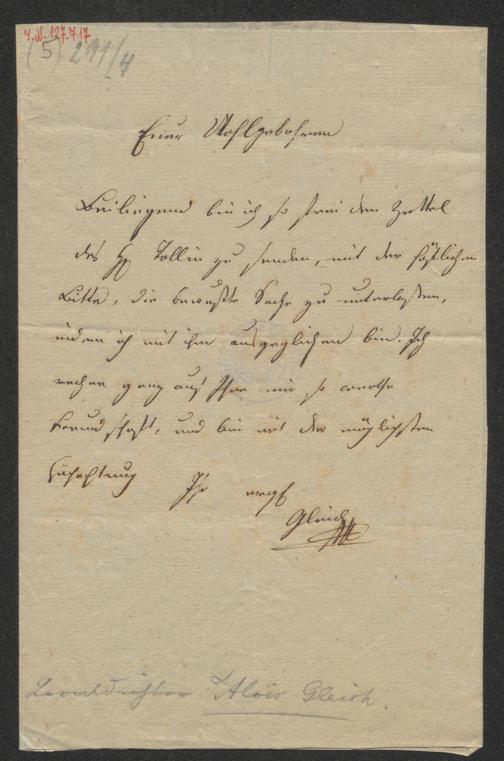 I.N. 127.717
(5) 291/4
Euer Wohlgebohren
Beiliegend bin ich so frei den Zettel
des H Tollin zu senden, mit der höflichen
Bitte, die bewußte Sache zu unterlaßen,
indem ich mit ihm ausgeglichen bin. Ich
rechne ganz auf Ihre mir so werthe
Freundschaft, und bin mit der möglichsten
Hochachtung
Ihr
Gleich
Localdichter Alois Gleich.